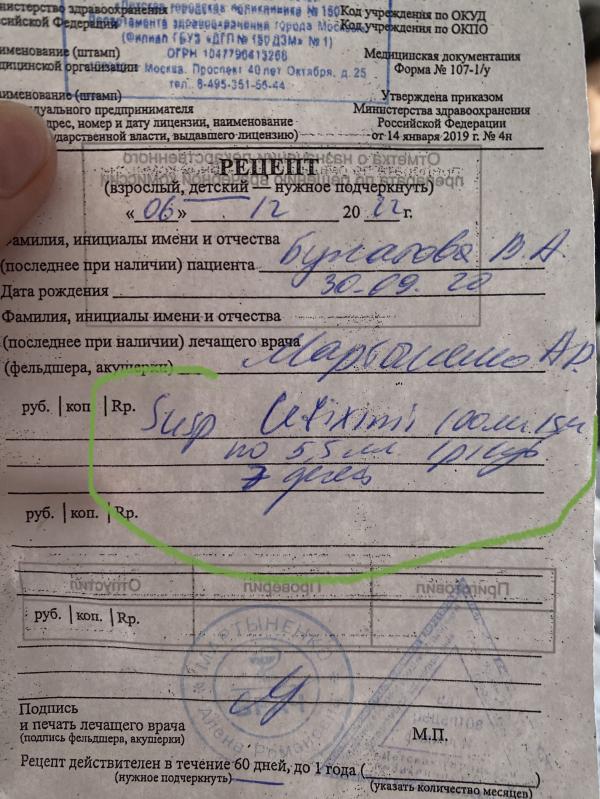 министерство здравоохранения
сийской Федерации
Код учреждения по ОКУД
Код учреждения по ОКПО
Детская городская поликлиника № 150
Департамента здравоохранения города Москвы
(Филиал ГБУЗ «ДГП № 150 ДЗМ» № 1)
ОГРН 1047796413268
Москва, Проспект 40 лет Октября, д. 25
тел. 8-495-351-56-44
именование (штамп)
дицинской организации
Медицинская документация
Форма № 107-1/у
именование (штамп)
видуального предпринимателя
дрес, номер и дату лицензии, наименование
сударственной власти, выдавшего лицензию)
Утверждена приказом
Министерства здравоохранения
Российской Федерации
от 14 января 2019 г. № 4н
РЕЦЕПТ
(взрослый, детский — нужное подчеркнуть)
« 06 » 12 20 22 г.
Фамилия, инициалы имени и отчества
(последнее при наличии) пациента В. А.
Дата рождения 30.09. 20
Фамилия, инициалы имени и отчества
(последнее при наличии) лечащего врача
(фельдшера, акушерки) Мартыненко А.Р.
руб. | коп. | Rp.
Susp 100мл
по 5,5 мл 1р/сут
7 дней
руб. | коп. | Rp.
Отпустил Проверил Приготовил
руб. | коп. | Rp.
МАРТЫНЕНКО
Алена Романовна
Подпись
и печать лечащего врача
(подпись фельдшера, акушерки)
М.П.
Рецепт действителен в течение 60 дней, до 1 года (
(нужное подчеркнуть)
(указать количество месяцев)